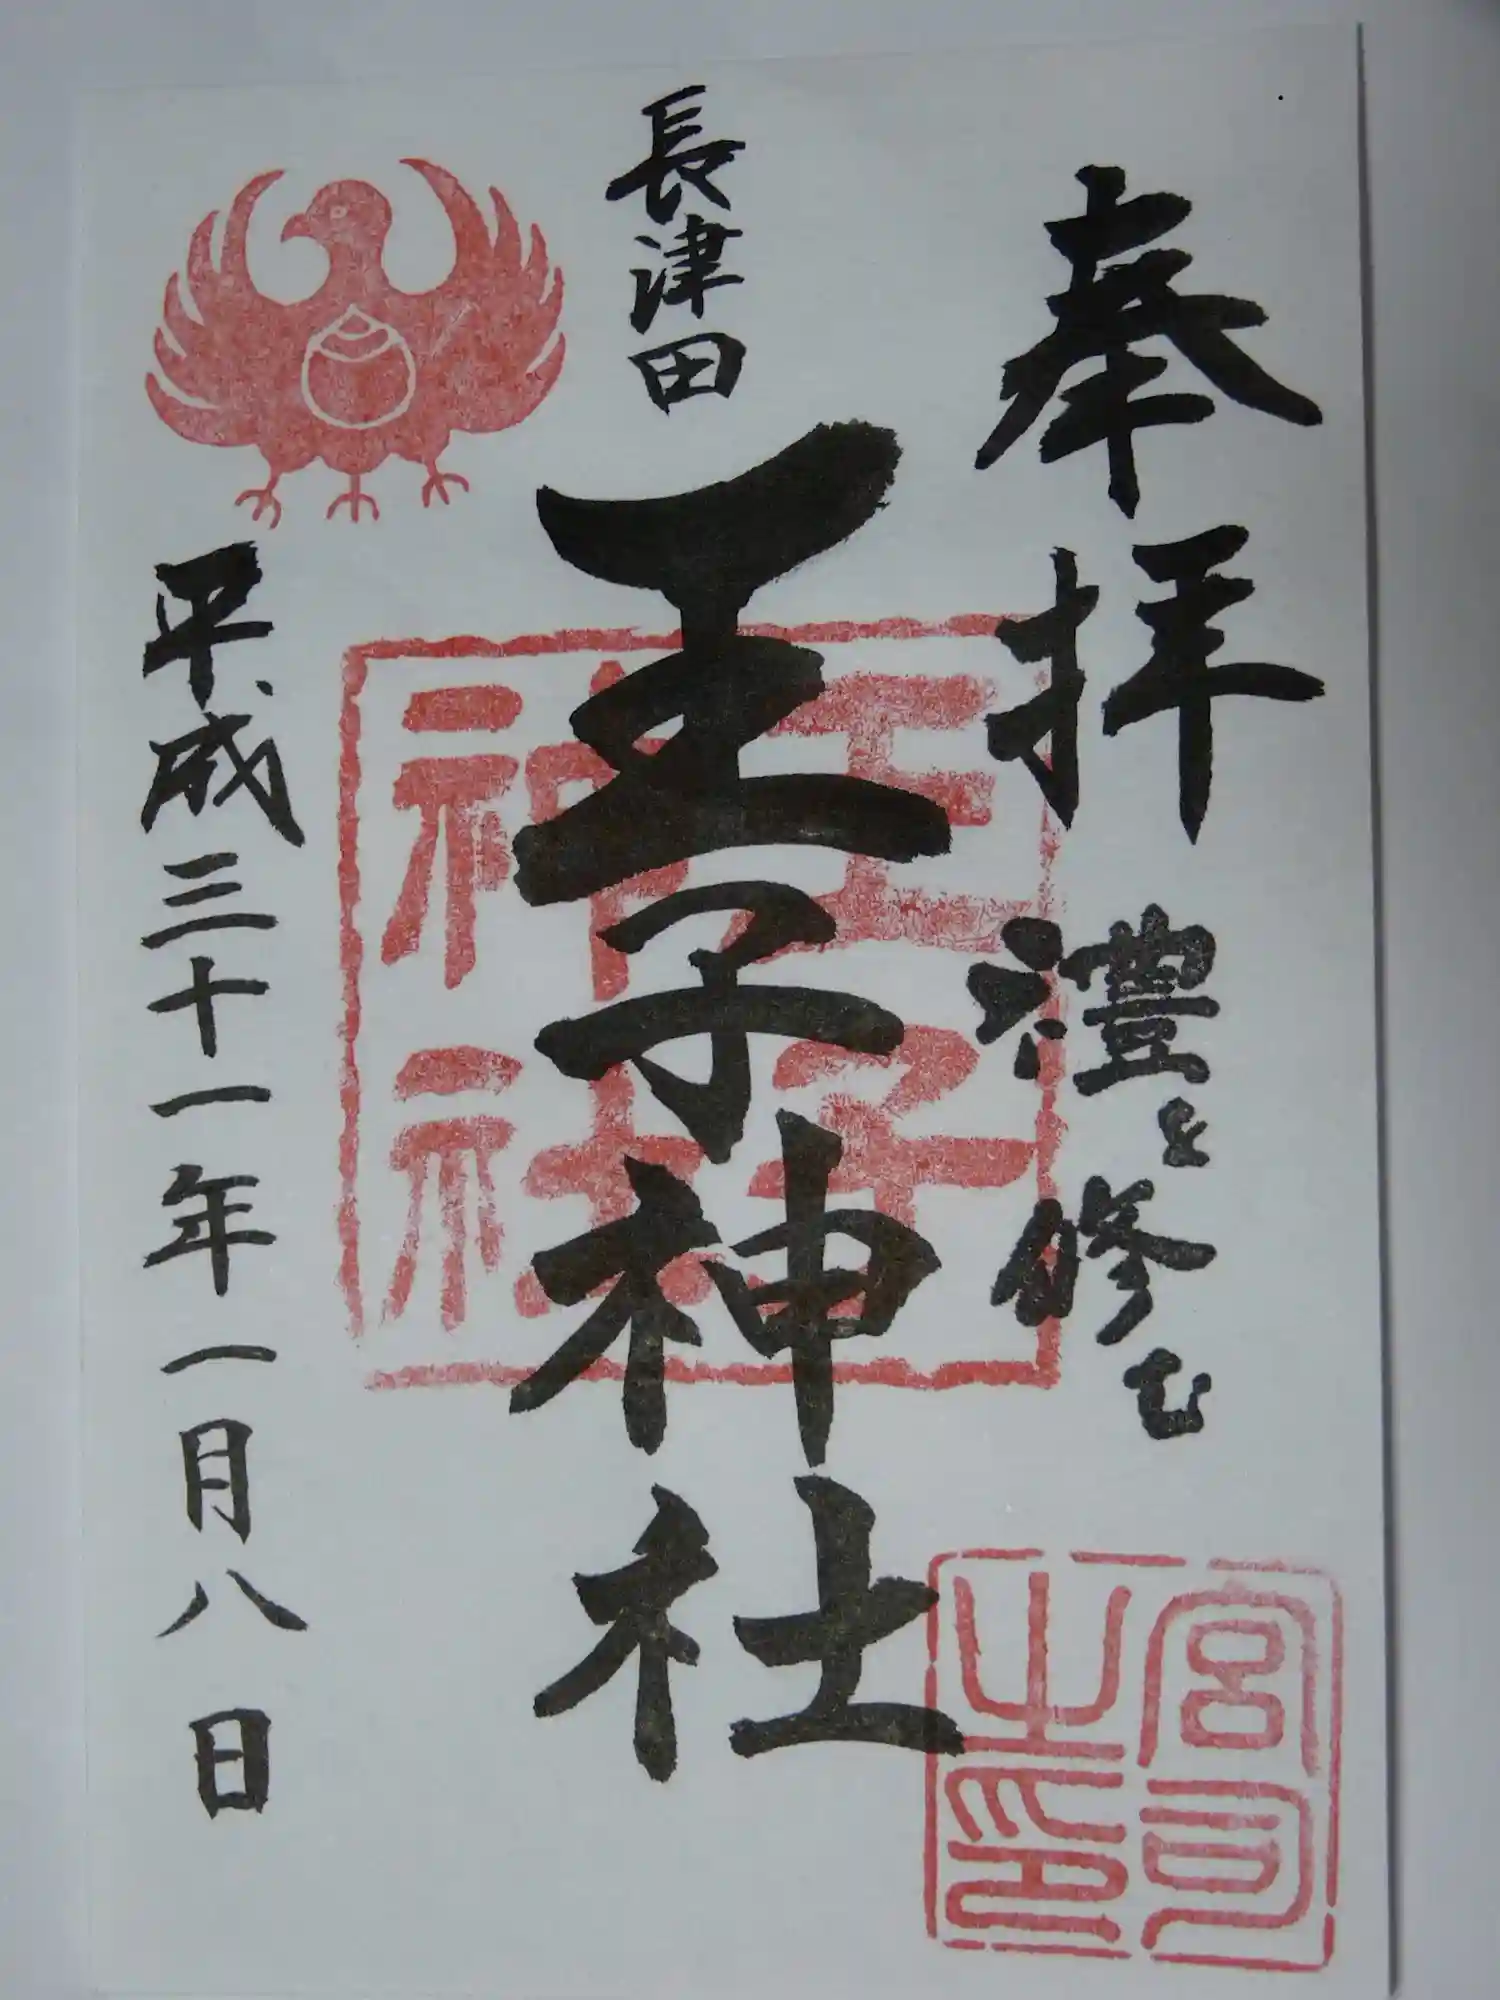 奉拝
禮を修む
宮司之印
長津田
王子神社
王子神社
平成三十一年一月八日